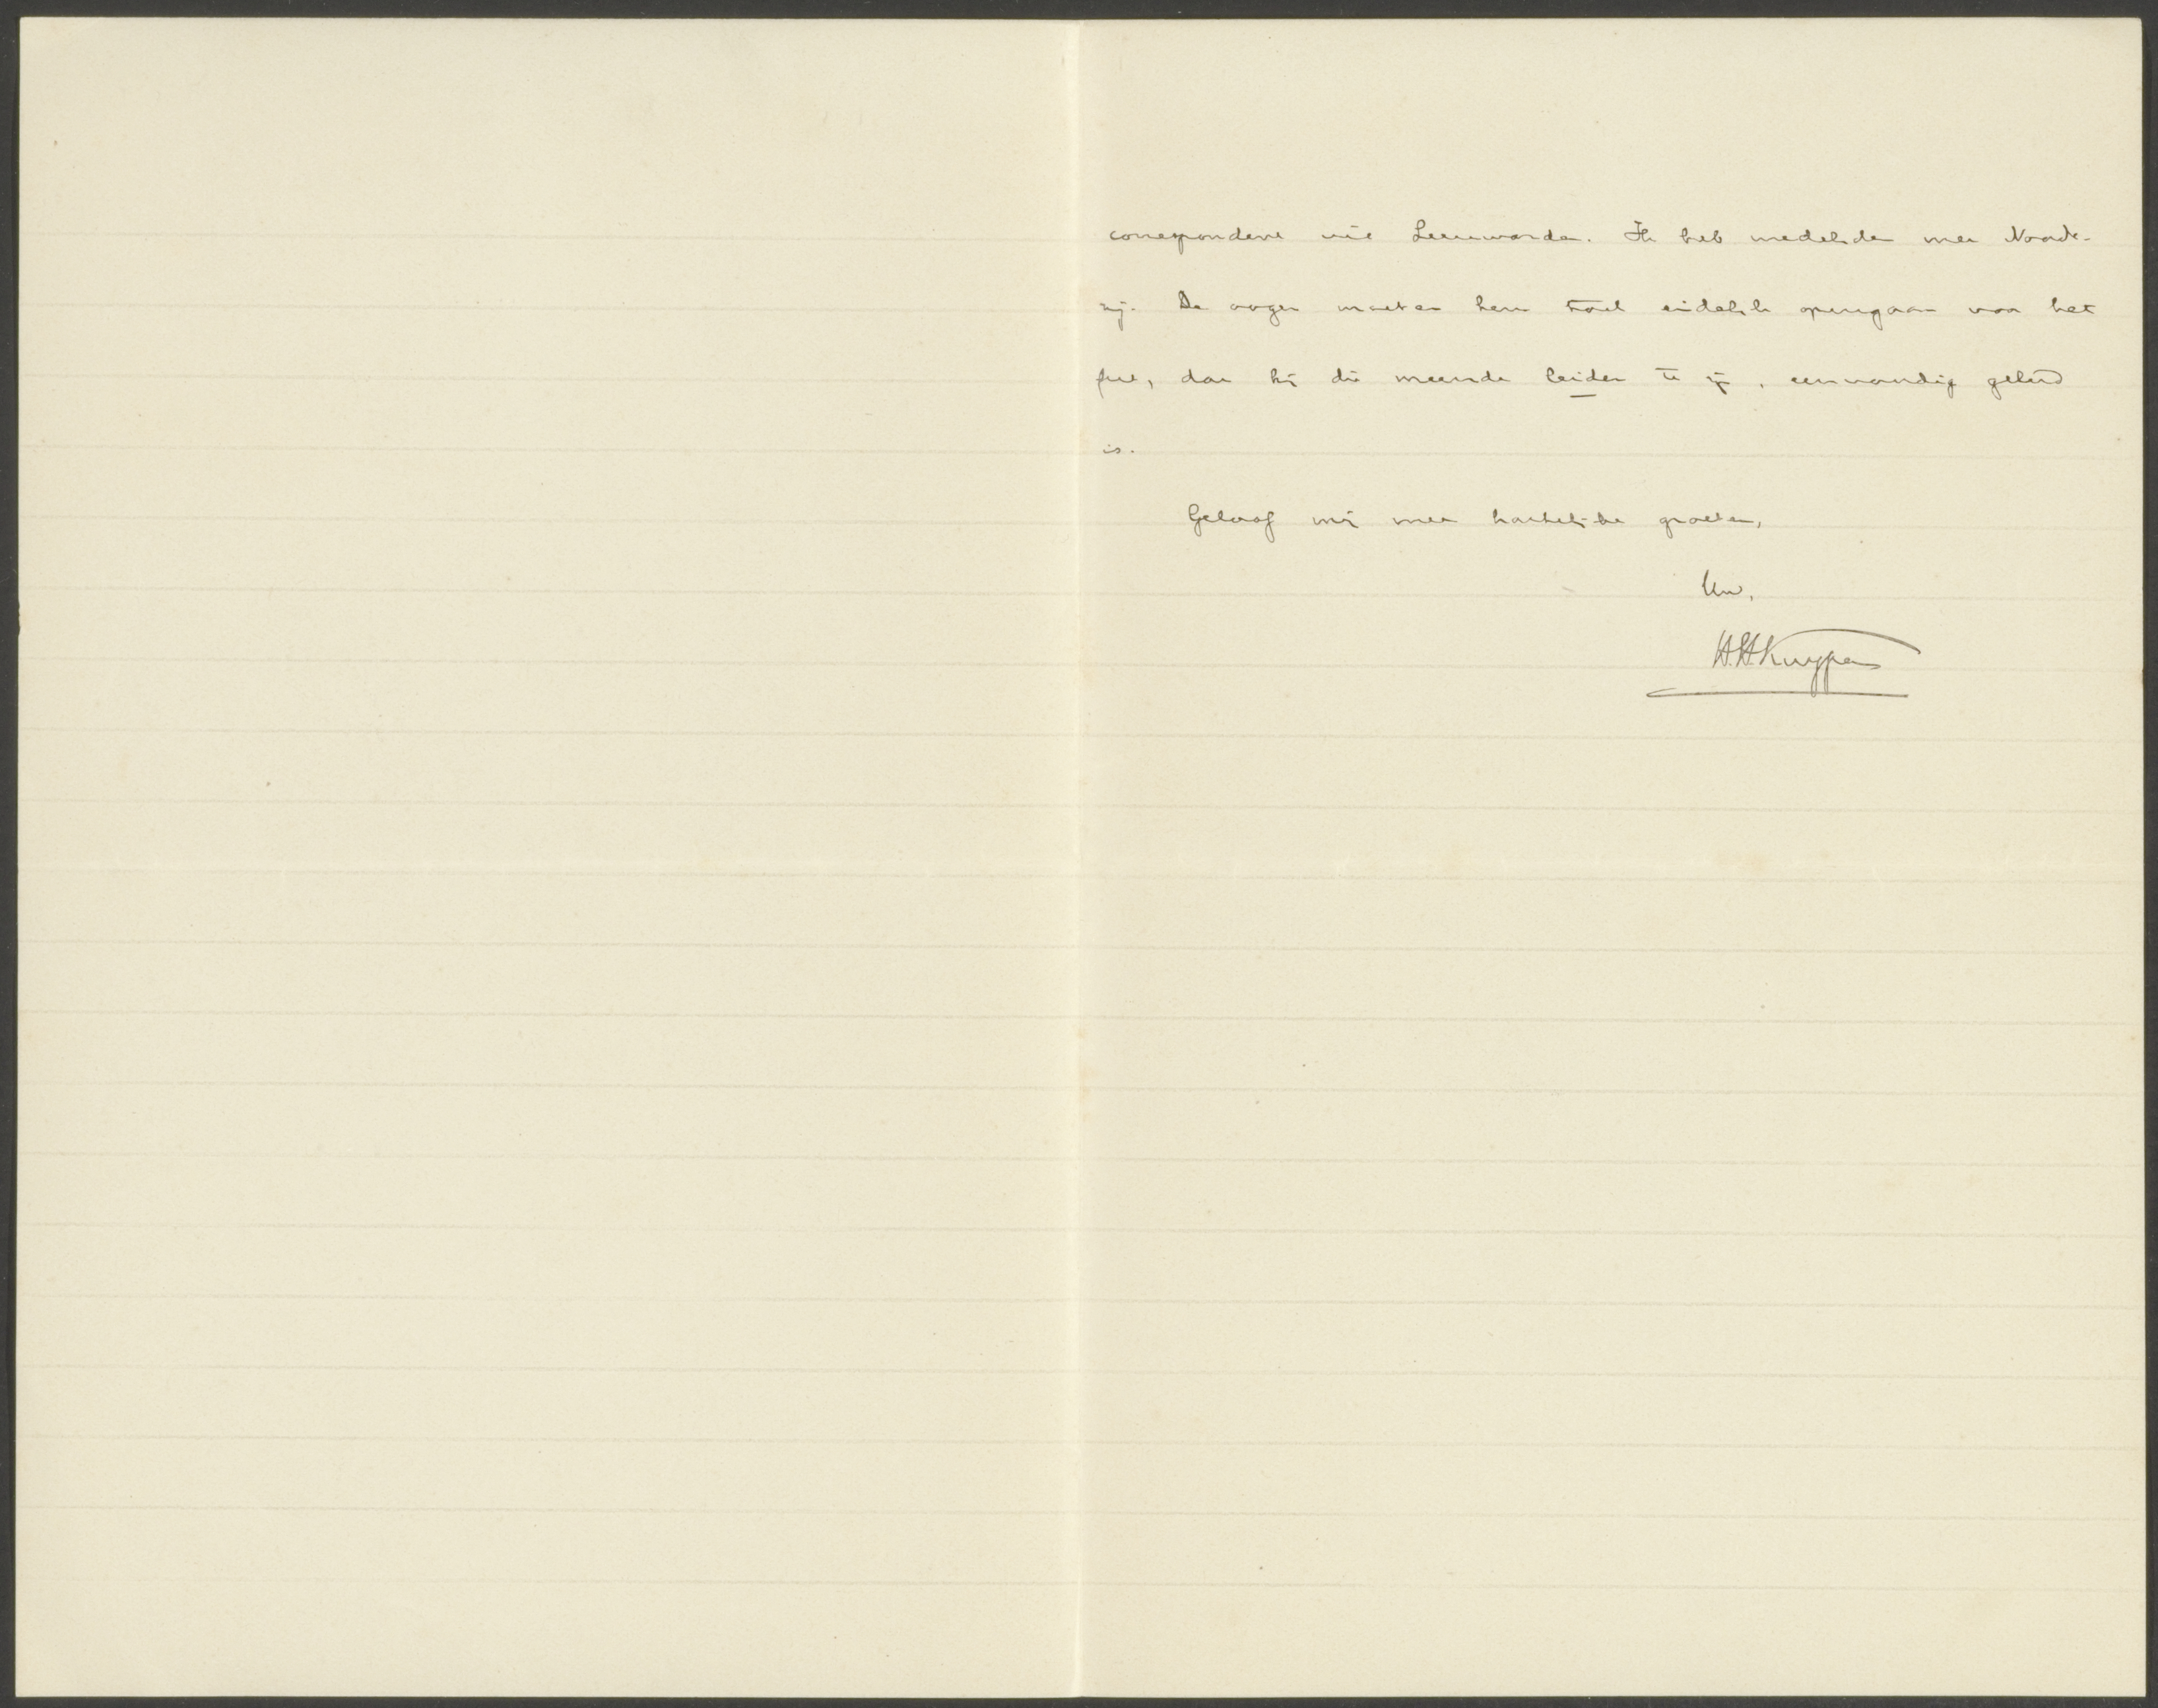 correspondent uit Leeuwarden. Ik heb medelijden met Noordt-
zij. De oogen moeten hem toch eindelijk opengaan voor het
feit, dat hij die meende leider te zijn, eenvoudig geleid
is.
Geloof mij met hartelijke groeten,
Uw,
H.H. Kuyper